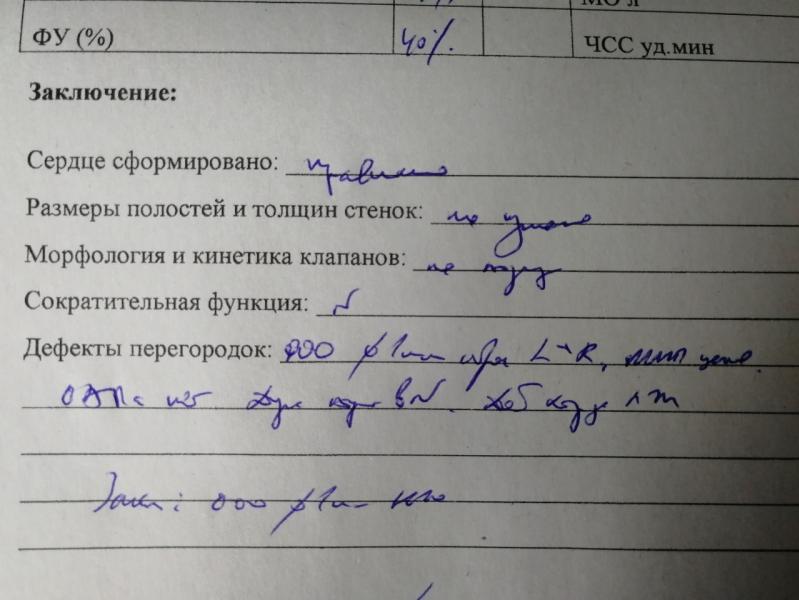 МО л
ФУ (%) 40% ЧСС уд.мин
Заключение:
Сердце сформировано: правильно
Размеры полостей и толщин стенок: не увел
Морфология и кинетика клапанов: не наруш
Сократительная функция: N
Дефекты перегородок: ООО L→R, МЖП
ОАПа нет Дуга аорты в N. Доб хорда ЛЖ
Закл: ООО